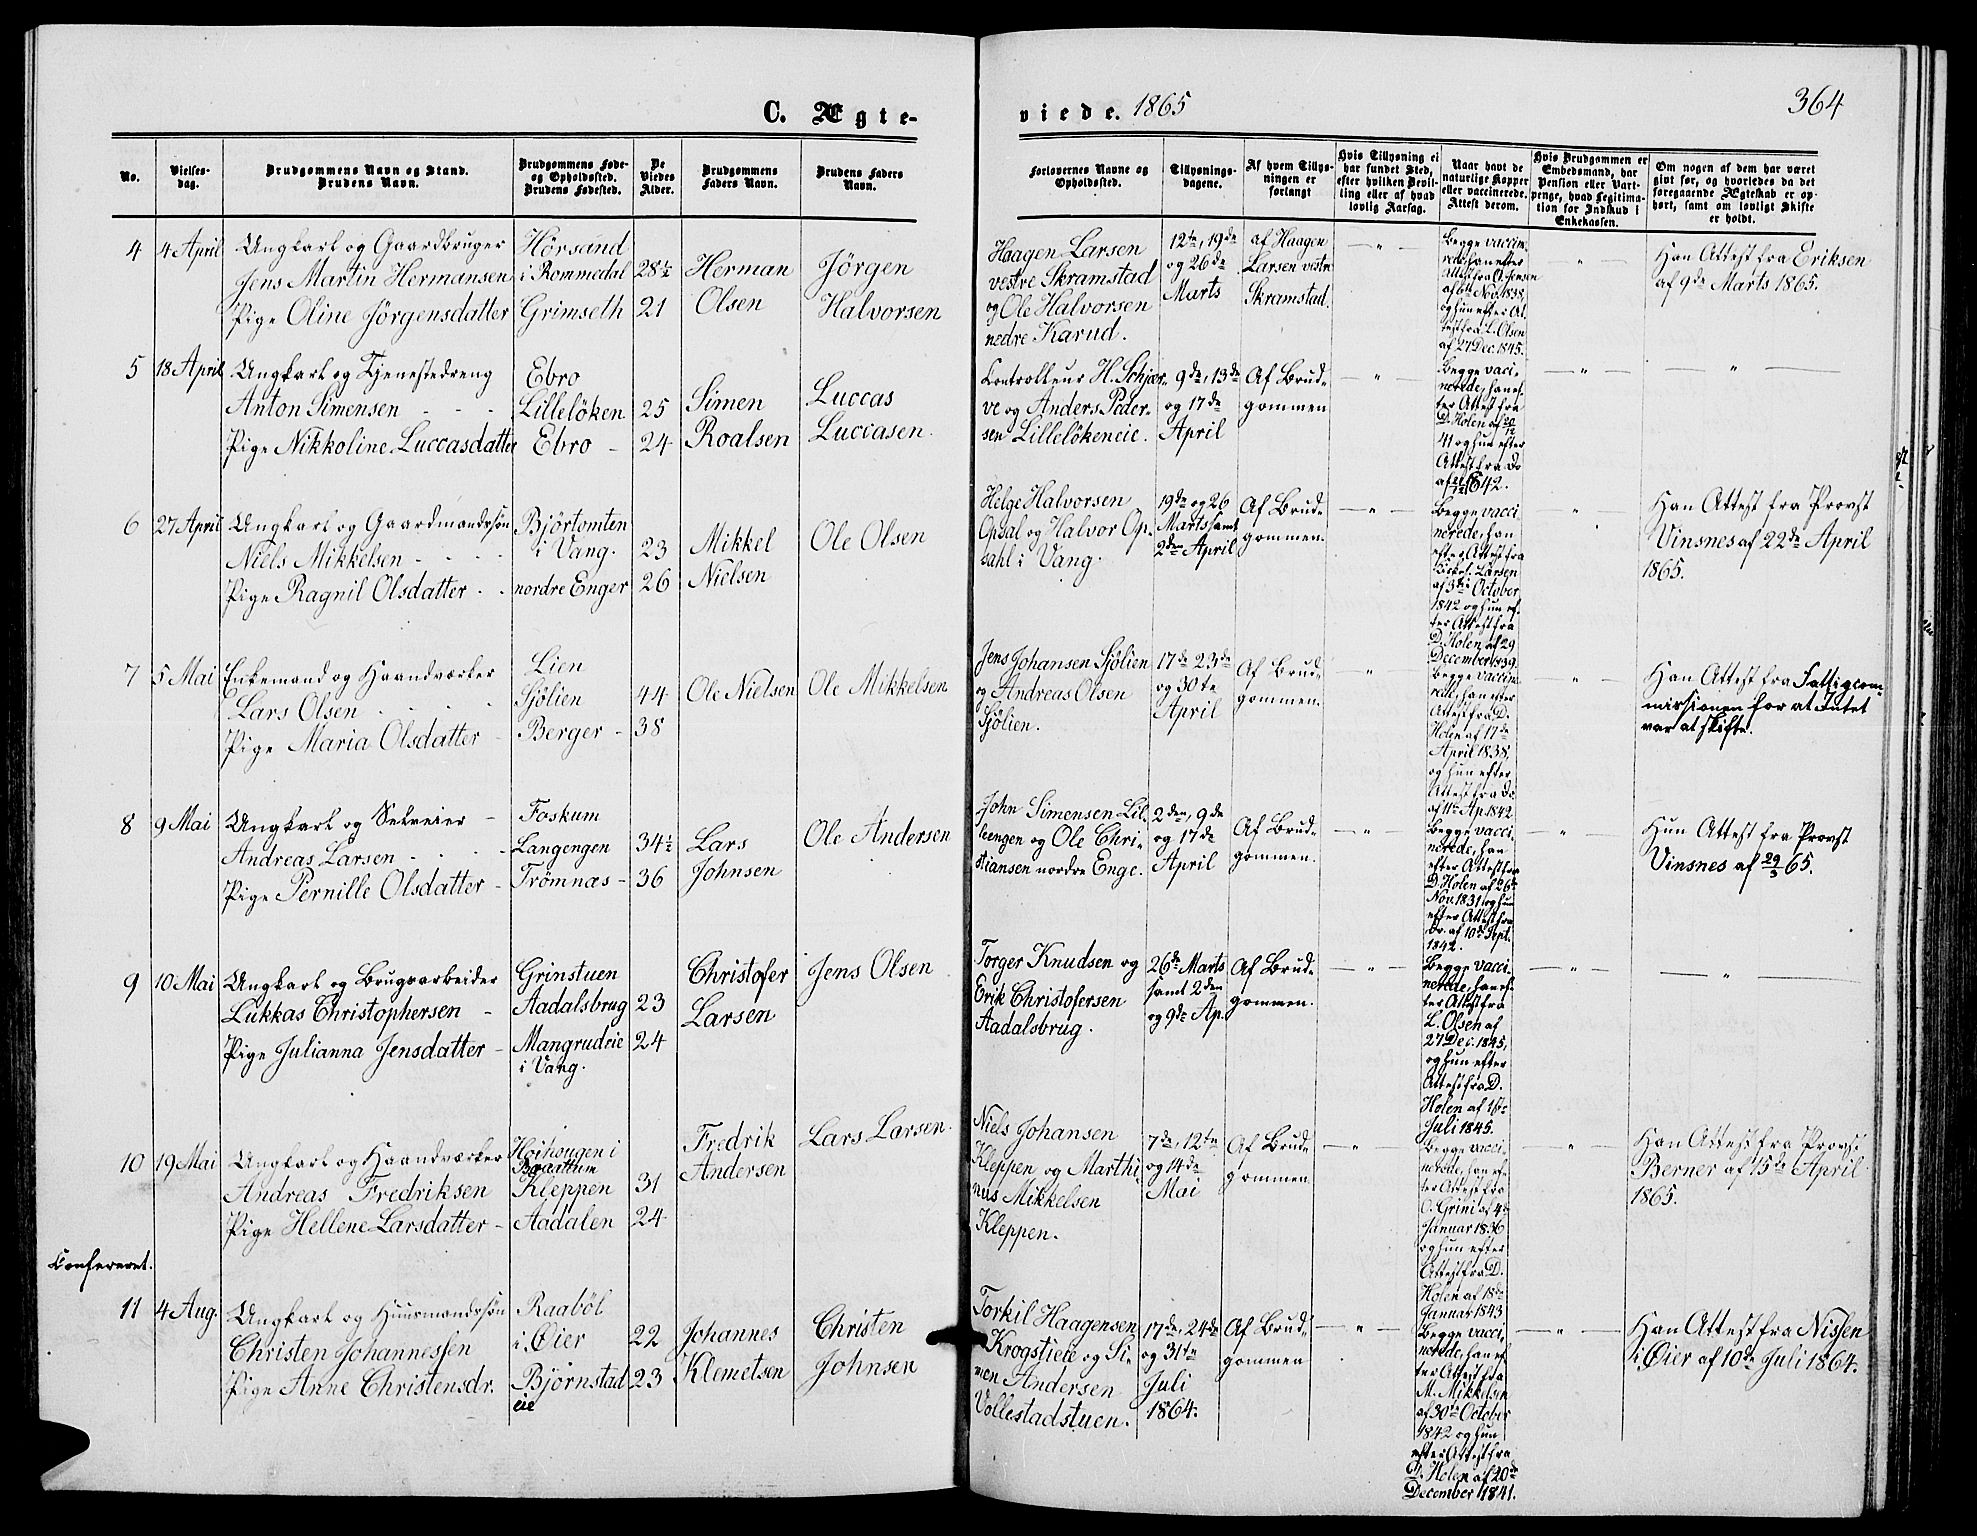 364
C. Ægteviede. 1865
No.
Vielses-
dag.
Brudgommens Navn og Stand.
Brudens Navn.
Brudgommens Føde-
og Opholdssted.
Brudens Fødested.
De
Viedes
Alder.
Brudgommens
Faders Navn.
Brudens Faders
Navn.
Forlovernes Navne og
Opholdssted.
Tillysnings-
dagene.
Af hvem Tillys-
ningen er
forlangt
Hvis Tillysning ei
har fundet Sted,
efter hvilken Bevil-
ling eller af hvad
lovlig Aarsag.
Naar havt de
naturlige Kopper
eller vaccinerede.
Attest derom.
Hvis Brudgommen er
Embedsmand, har
Pension eller Vart-
penge, hvad Legitima-
tion for Indskud i
Enkekassen.
Om nogen af dem har været
gift før, og hvorledes da det
foregaaende Ægteskab er op-
hørt, samt om lovligt Skifte
er holdt.
4
4 April
Ungkarl og Gaardbruger
Jens Martin Hermansen
Pige Oline Jörgensdatter
Hörsand
i Rommedal
Grimseth
28½
21
Herman
Olsen
Jörgen
Halvorsen
Haagen Larsen
vestre Skramstad
og Ole Halvorsen
nedre Karud.
12te, 19de
og 26de
Marts
af Haagen
Larsen vestre
Skramstad.
— " —
Begge vaccine-
rede, han efter
Attest fra O. Jensen
af 6te Nov. 1838,
og hun efter At-
test fra L. Olsen
af 27 Dec. 1845.
— " —
Han Attest fra Eriksen
af 9de Marts 1865.
5
18 April
Ungkarl og Tjenestedreng
Anton Simensen - - -
Pige Nikkoline Luccasdatter
Ebro
Lillelöken
Ebro -
25
24
Simen
Roalsen
Luccas
Luccasen.
Controlleur H. Schjær-
ve og Anders Peder-
sen Lillelökeneie.
9de, 13de
og 17de
April
Af Brud-
gommen
— " —
Begge vacci-
nerede, han ef-
ter Attest fra
D. Holen af 20/12
41 og hun efter
Attest fra Do
— " —
— " —
6
27 April
Ungkarl og Gaardmandssøn
Niels Mikkelsen - - -
Pige Ragnil Olsdatter - -
Björtomten
i Vang.
nordre Enger
23
26
Mikkel
Nielsen
Ole Olsen
Helge Halvorsen
Opsal og Halvor Op-
sahl i Vang.
19de og 26
Marts samt
2den April
Af Brud-
gommen.
— " —
Begge vacci
nerede, han
efter Attest fra
Kirkes. Larsen
af 3die October
1842 og hun ef-
ter Attest fra
D. Holen af 29
December 1839.
"
Han Attest fra Provst
Vinsnes af 22de April
1865.
7
5 Mai
Enkemand og Haandværker
Lars Olsen - - -
Pige Maria Olsdatter -
Lien
Sjölien
Berger -
44
38
Ole Nielsen
Ole Mikkelsen
Jens Johansen Sjölien
og Andreas Olsen
Sjölien.
17de 23de
og 30te
April
Af Brud-
gommen.
"
Begge vaccine-
rede, han efter
Attest fra D.
Holen af 17de
April 1838,
og hun efter
Attest fra Do
af 11te Ap 1842
— " —
Han Attest fra Fattigcom-
missionen for at Intet
var at skifte.
8
9 Mai
Ungkarl og Selveier -
Andreas Larsen - - -
Pige Pernille Olsdatter -
Foskum
Langengen
Trömnæs -
34½
36
Lars
Johnsen
Ole Andersen
John Simensen Lil-
leengen og Ole Chri-
stiansen nordre Enge.
2den, 9de
og 17de
April
Af Brud-
gommen.
— " —
Begge vacci-
nerede, han
efter Attest fra
D. Holen af 26de
Nov. 1831 og hun
efter Attest fra
Do. af 10de Sept.
1842.
— " —
Hun Attest fra Provst
Vinsnes af 29/3 65.
9
10 Mai
Ungkarl og Brugsarbeider
Lukkas Christophersen -
Pige Julianna Jensdatter -
Grinstuen
Aadalsbrug
Mangrudeie
i Vang.
23
24
Christofer
Larsen
Jens Olsen
Torger Knudsen og
Erik Christofersen
Aadalsbrug.
26de Marts
samt 2den
og 9de Ap.
Af Brud-
gommen.
— " —
Begge vacci-
nerede, han ef-
ter Attest fra
L. Olsen af
27 Dec. 1845,
og hun efter
Attest fra D.
Holen af 1ste
Juli 1845.
— " —
— " —
10
19 Mai
Ungkarl og Haandværker
Andreas Fredriksen
Pige Hellene Larsdatter -
Höihougen i
Baardum
Kleppen
Aadalen
31
24
Fredrik
Andersen
Lars Larsen.
Niels Johansen
Kleppen og Marthi-
nus Mikkelsen
Kleppen.
7de, 12te
og 14de
Mai
Af Brud-
gommen
— " —
Begge vacci-
nerede, han ef-
ter Attest fra
O. Grini af 4de
Januar 1836
og hun efter
Attest fra D.
Holen af 18de
Januar 1843
"
Han Attest fra Provst
Berner af 15de April
1865.
Confereret.
11
4 Aug.
Ungkarl og Huusmandssøn
Christen Johannessen
Pige Anne Christensdr.
Raaböl
i Øier
Björnstad
eie
22
23
Johannes
Klemetsen
Christen
Johnsen
Torkil Haagensen
Krogstieie og Si-
men Andersen
Vollestadstuen.
17de, 24de
og 31te
Juli
1864.
Af Brud-
gommen
— " —
Begge vacci-
nerede, han ef-
ter Attest fra
M. Mikkelsen
af 30te October
1842 og hun
efter Attest fra
D. Holen af 20de
December 1841.
— " —
Han Attest fra Nissen
i Øier af 10de Juli 1864.